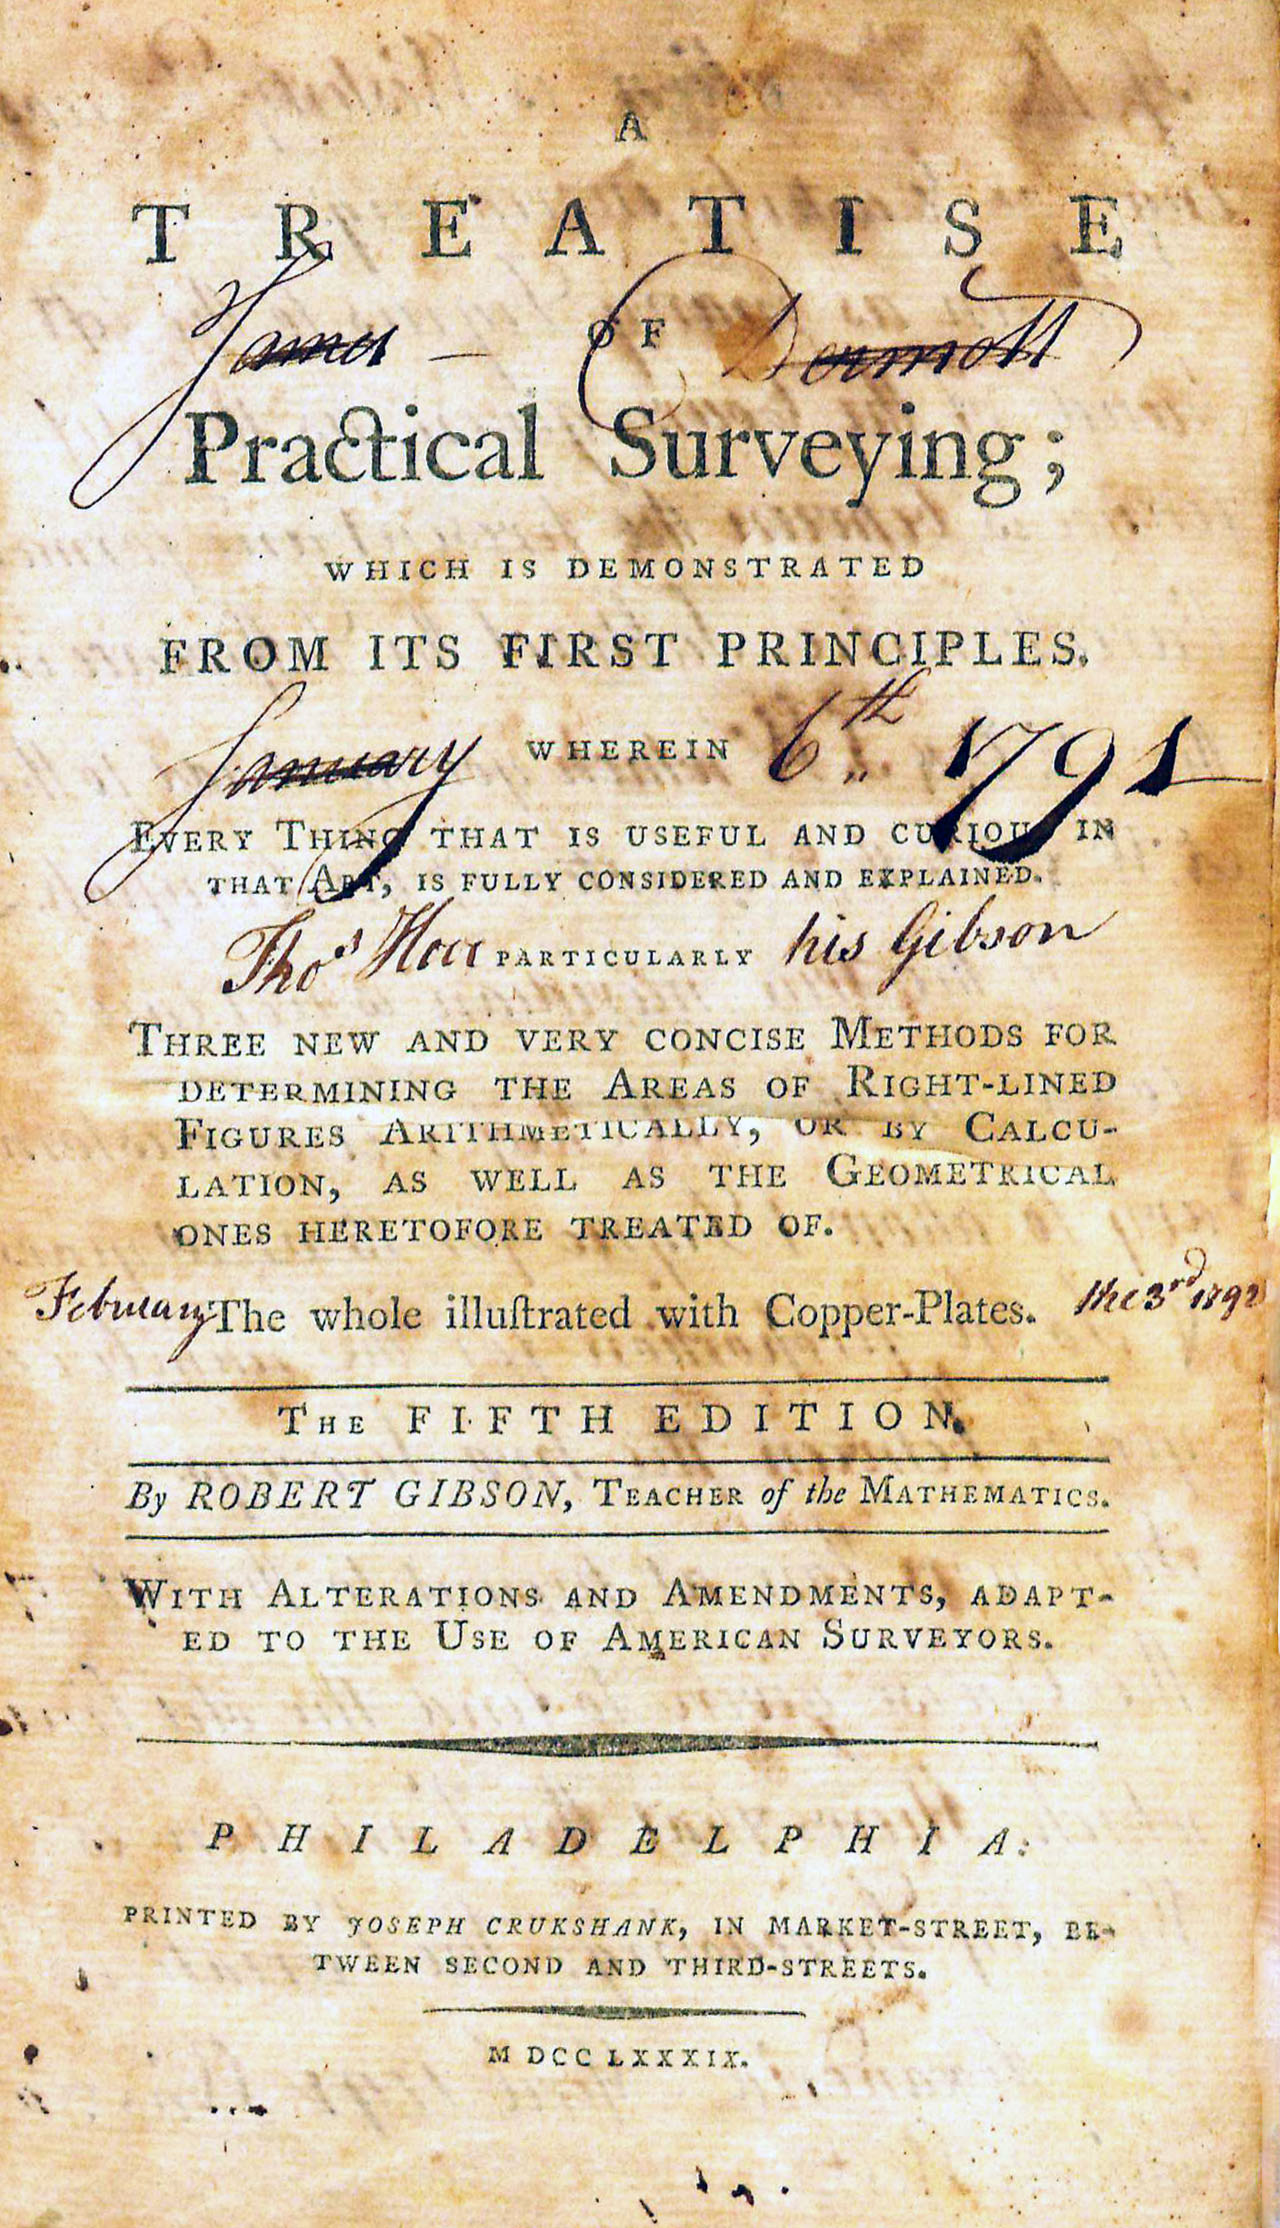 A
TREATISE
OF
James — Dermott
Practical Surveying;
WHICH IS DEMONSTRATED
FROM ITS FIRST PRINCIPLES.
WHEREIN
January 6th 1791
EVERY THING THAT IS USEFUL AND CURIOUS IN
THAT ART, IS FULLY CONSIDERED AND EXPLAINED.
Thos PARTICULARLY his Gibson
THREE NEW AND VERY CONCISE METHODS FOR
DETERMINING THE AREAS OF RIGHT-LINED
FIGURES ARITHMETICALLY, OR BY CALCU-
LATION, AS WELL AS THE GEOMETRICAL
ONES HERETOFORE TREATED OF.
February The whole illuſtrated with Copper-Plates. the 3rd 1792
THE FIFTH EDITION.
By ROBERT GIBSON, TEACHER of the MATHEMATICS.
WITH ALTERATIONS AND AMENDMENTS, ADAPT-
ED TO THE USE OF AMERICAN SURVEYORS.
PHILADELPHIA:
PRINTED BY JOSEPH CRUKSHANK, IN MARKET-STREET, BE-
TWEEN SECOND AND THIRD-STREETS.
MDCCLXXXIX.